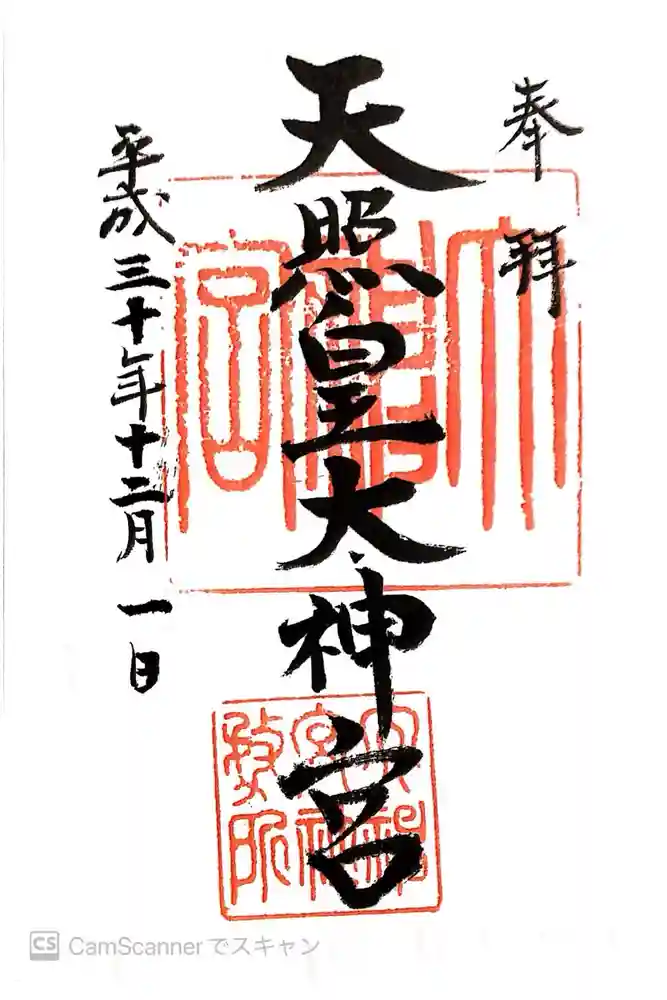 奉拝
天照皇大神宮
平成三十年十二月一日
大神宮
CS CamScannerでスキャン